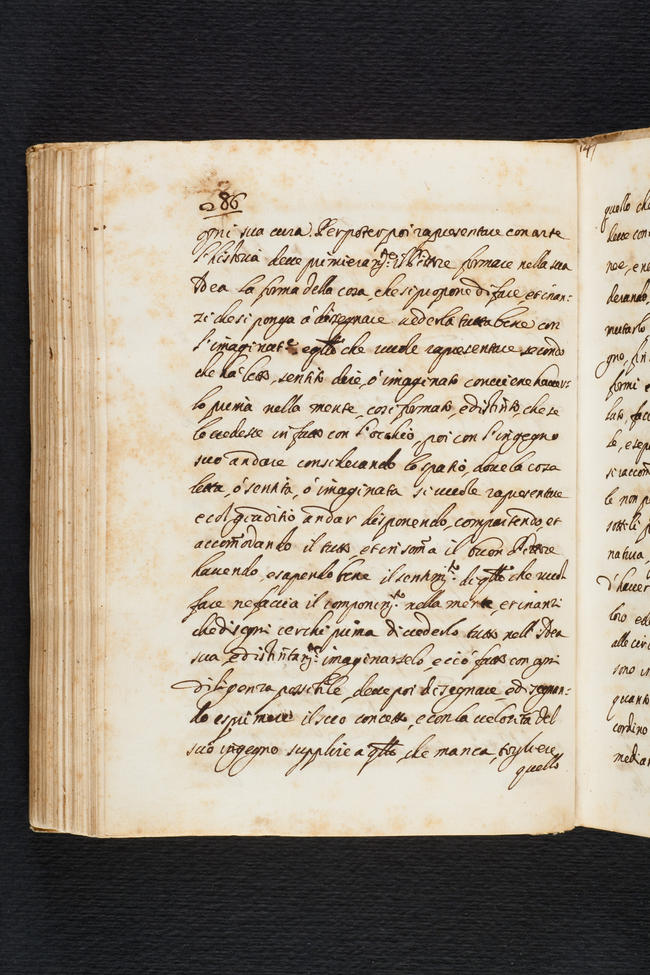 286
ogni sua cura. Per poter poi rapresentare con arte
l'historia deve primieram.te il Pittore formare nella sua
Idea la forma della cosa, che si propone di fare, et inan-
zi che si ponga à dissegnare vederla tutta bene con
l'imaginat.e e q̃llo che vuole rapresentare secondo
che hà letto, sentito dire, ò imaginato conviene haver-
lo prima nella mente, così formato, e distinto, che se
lo vedesse in fatto con l'occhio, poi con l'ingegno
suo andare considerando lo spatio, dove la cosa
letta, ò sentita, ò imaginata si vuole rapresentare
e col giuditio andar disponendo, compartendo, et
accom̃odando il tutto, et in som̃a il buon Pittore
havendo, e sapendo bene il sentim.to di q̃llo che vuol
fare ne faccia il componim.to nella mente, et inanzi
che disegni cerchi prima di vederlo tutto nell'Idea
sua, e distintam.te imaginarselo, e ciò fatto con ogni
diligenza possibile, deve poi disegnare, e disegnan-
do esprimere il suo concetto, e con la velocità del
suo ingegno supplire a q̃llo, che manca, togliere
quello
147
quello che
deve con
derando,
mutarlo
formi
nativa,
d'haver
loro
sono in
quanto
cordino